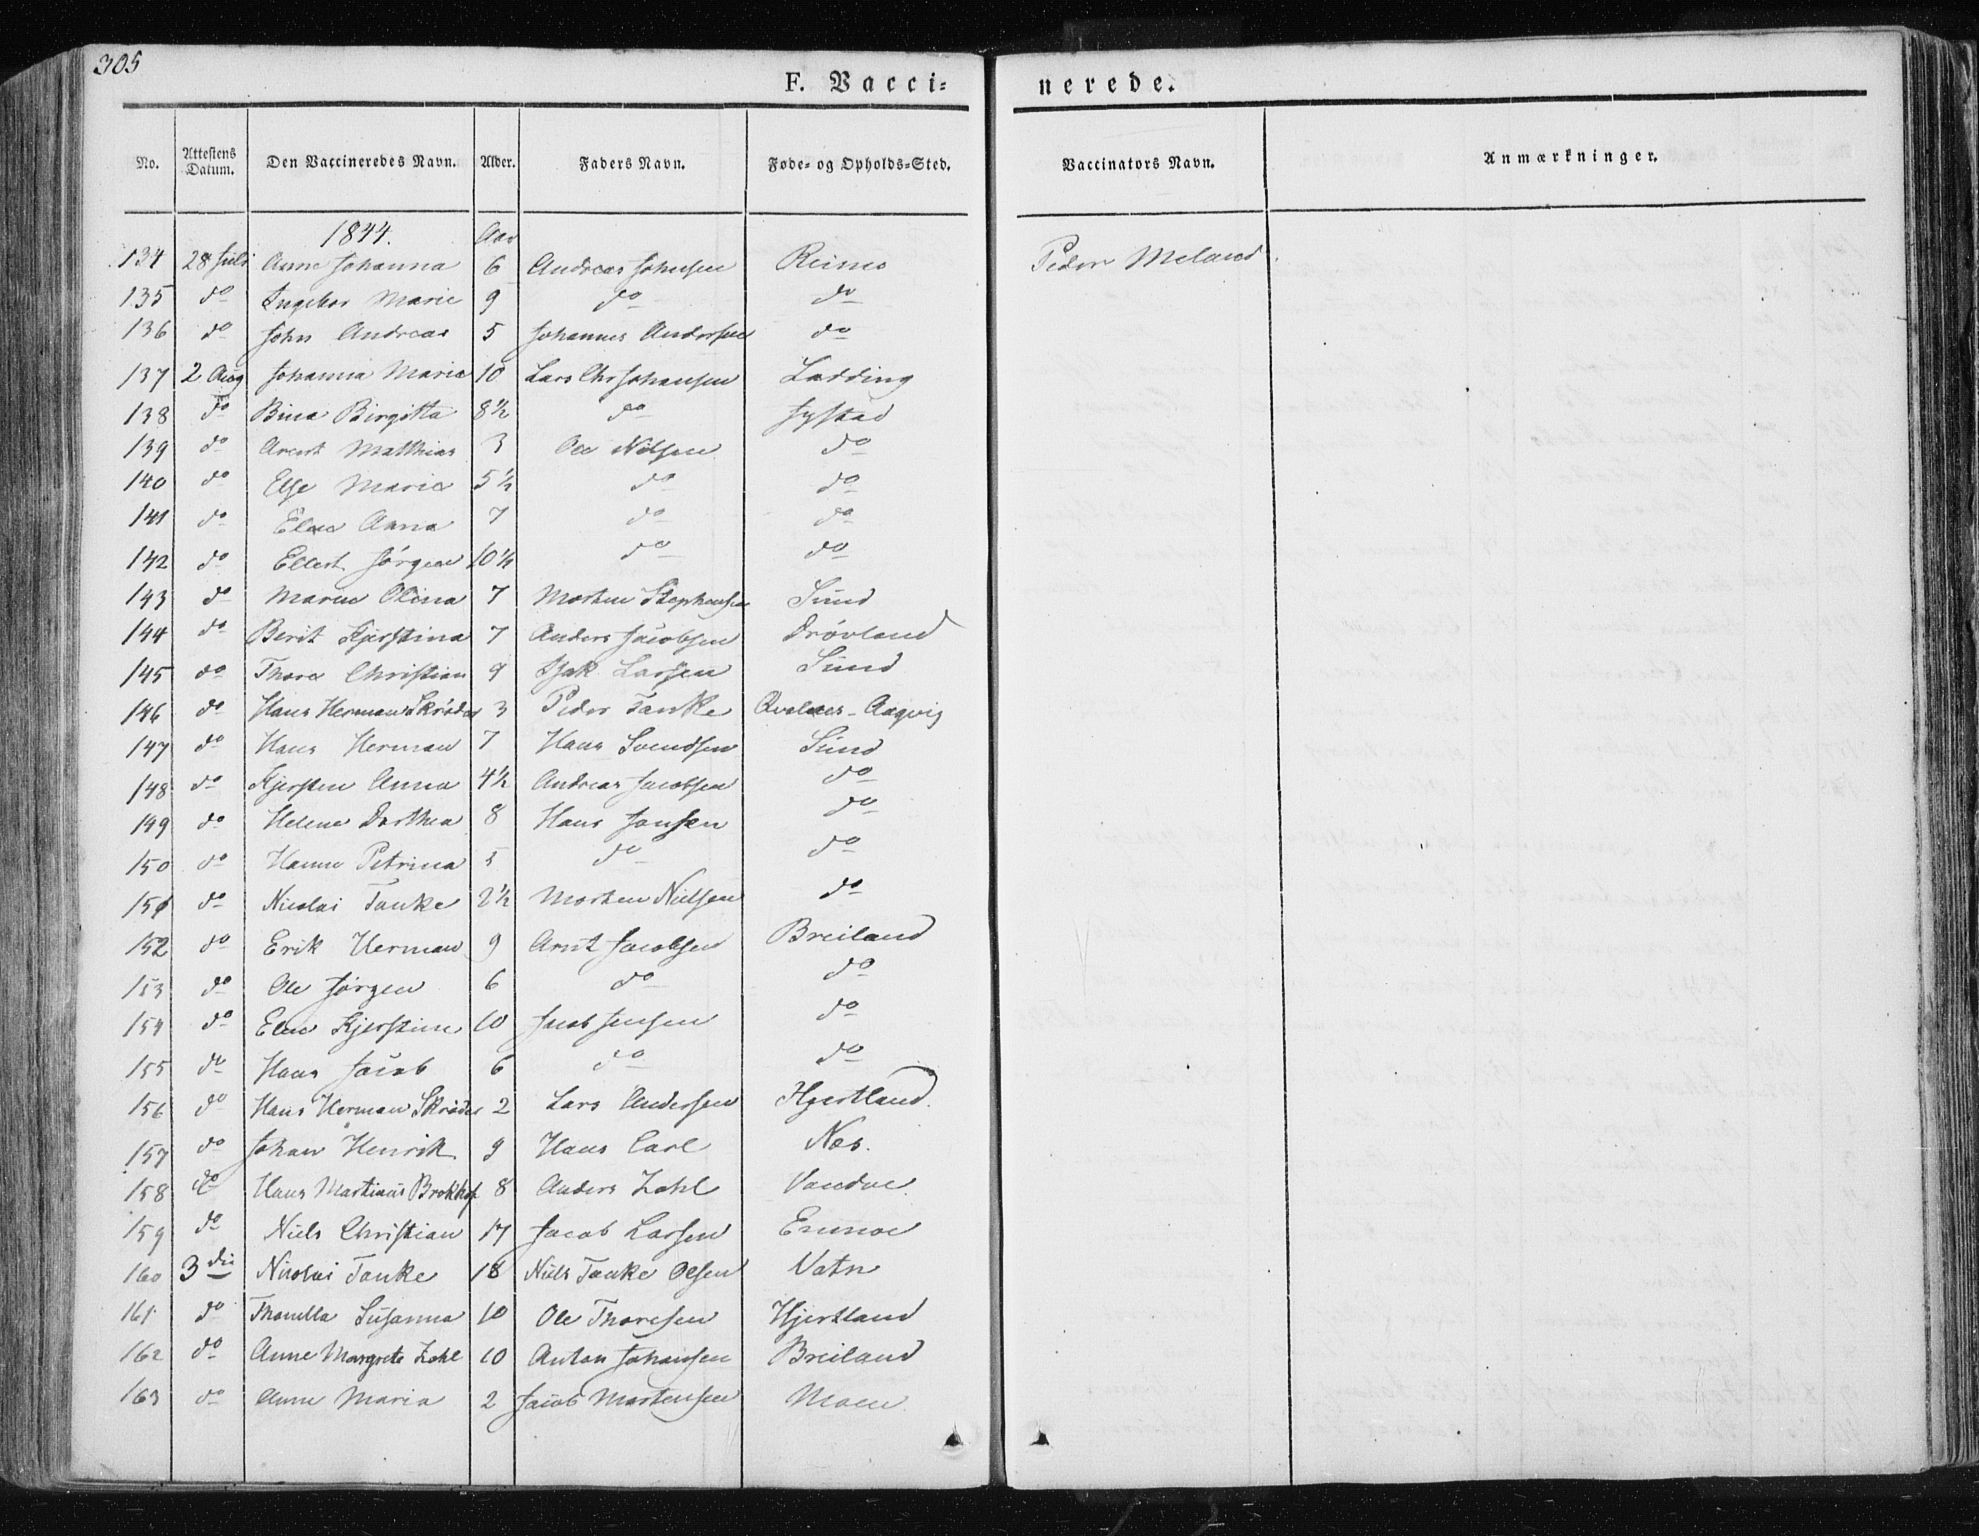 305
F. Vacci=
nerede.
No. Attestens Datum. Den Vaccineredes Navn. Alder. Faders Navn. Føde- og Opholds-Sted. Vaccinators Navn. Anmærkninger.
1844. Aar
134 28 Juli Anne Johanna 6 Andreas Johnsen Reines Peder Meland.
135 do Ingebor Marie 9 do do
136 do John Andreas 5 Johannes Andersen do
137 2 Aug Johanna Maria 10 Lars Chr Johansen Ladding
138 do Bina Birgitta 8½ do Systad
139 do Arent Matthias 3 Ole Nilsen do
140 do Else Maria 5½ do do
141 do Elen Anna 7 do do
142 do Ellert Jørgen 10½ do do
143 do Maren Olina 7 Morten Stephensen Sund
144 do Berit Kjerstina 7 Anders Jacobsen Drøvland
145 do Thora Christian 9 Isak Larsen Sund
146 do Hans Herman Skrøder 3 Peder Tanke Qvalnes - Aagvig
147 do Hans Herman 7 Hans Svendsen Sund
148 do Kjersten Anna 4½ Andreas Jacobsen do
149 do Helene Dorthea 8 Hans Jansen do
150 do Hanne Petrina 5 do do
151 do Nicolai Tanke 2½ Morten Nielsen do
152 do Erik Herman 9 Arnt Jacobsen Breiland
153 do Ole Jørgen 6 do do
154 do Elen Kjerstine 10 Jacob Jensen do
155 do Hans Jacob 6 do do
156 do Hans Herman Skrøder 2 Lars Andersen Hjertland.
157 do Johan Henrik 9 Hans Carl Nes.
158 do Hans Martinus Brokhof 8 Anders Zahl Vandve
159 do Niels Christian 17 Jacob Larsen
160 3 die Nicolai Tanke 18 Niels Tanke Olsen Vatn
161 do Thomilla Susanna 10 Ole Thoresen Hjertland
162 do Anne Margrete Zahl 10 Anton Johansen Breiland
163 do Anne Maria 2 Jacob Mortensen Moen